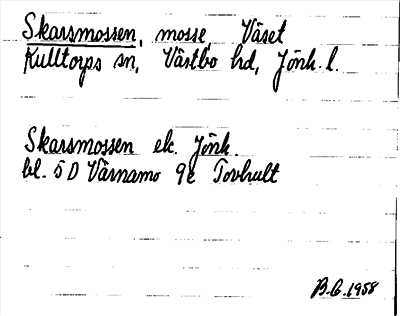 Skarsmossen, mosse, Väset
Kulltorps sn, Västbo hd, Jönk. l.
Skarsmossen ek. Jönk.
bl. 5 D Värnamo 9c Tovhult
B.G. 1958